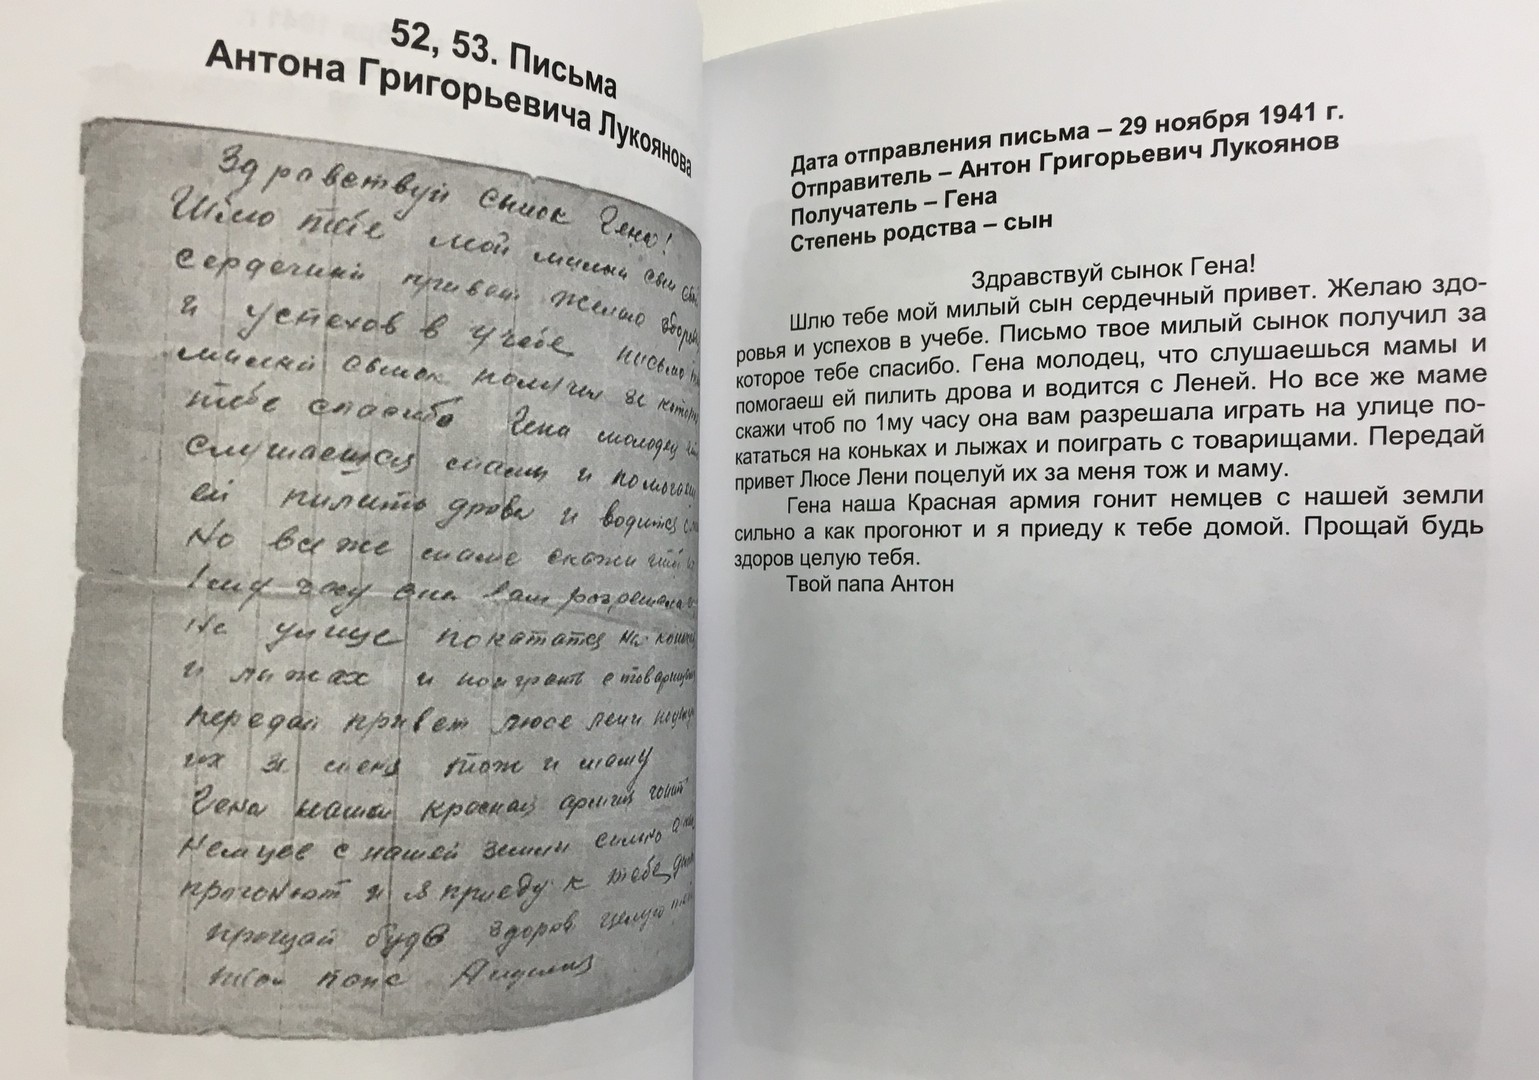 52, 53. Письма
Антона Григорьевича Лукоянова
Здравствуй сынок Гена!
Шлю тебе мой милый сын
сердечный привет желаю здоров
и успехов в учебе письмо
милый сынок получил за котор
тебе спасибо Гена молодец
слушаешся мамы и помогаеш
ей пилить дрова и водится с
Но все же маме скажи чтоб
1му часу она вам разрешала
на улице покататся на коньках
и лыжах и поиграть с товарищами
передай привет люсе лени поцелуй
их за меня тож и маму
Гена наша красная армия гонит
Немцев с нашей земли сильно а как
прогонют и я приеду к тебе дом
прощай будь здоров целую тебя
твой папа
Дата отправления письма – 29 ноября 1941 г.
Отправитель – Антон Григорьевич Лукоянов
Получатель – Гена
Степень родства – сын
Здравствуй сынок Гена!
Шлю тебе мой милый сын сердечный привет. Желаю здо-
ровья и успехов в учебе. Письмо твое милый сынок получил за
которое тебе спасибо. Гена молодец, что слушаешься мамы и
помогаеш ей пилить дрова и водится с Леней. Но все же маме
скажи чтоб по 1му часу она вам разрешала играть на улице по-
кататься на коньках и лыжах и поиграть с товарищами. Передай
привет Люсе Лени поцелуй их за меня тож и маму.
Гена наша Красная армия гонит немцев с нашей земли
сильно а как прогонют и я приеду к тебе домой. Прощай будь
здоров целую тебя.
Твой папа Антон